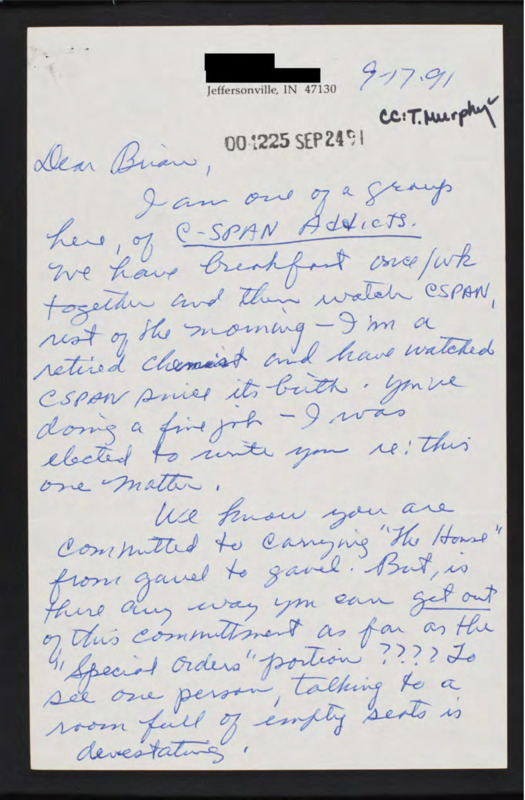 Jeffersonville, IN 47130
9-17-91
CC: T. Murphy
001225 SEP 24 91
Dear Brian,
I am one of a group
here, of C-SPAN Addicts.
We have breakfast once/wk
together and then watch CSPAN,
rest of the morning - I'm a
retired chemist and have watched
CSPAN since its birth. You're
doing a fine job - I was
elected to write you re: this
one matter.
We know you are
committed to carrying "The House"
from gavel to gavel. But, is
there any way you can get out
of this committment as far as the
"Special Orders" portion ???? To
see one person, talking to a
room full of empty seats is
devestating.